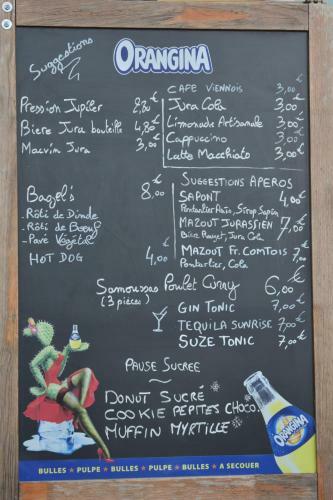 Suggestions
ORANGINA
CAFE VIENNOIS 3,00€
Pression Jupiler 2,20€
Biere Jura bouteille 4,80€
Macvin Jura 3,00€
Jura Cola 3,00€
Limonade Artisanale 3,00€
Cappuccino 3,00€
Latte Macchiato 3,00€
Bagel's 8,00€
- Rôti de Dinde
- Rôti de Boeuf
- Pavé Végétal
HOT DOG 4,00€
SUGGESTIONS APEROS
SAPONT 4,00€
Pontarlier Anis, Sirop Sapin
MAZOUT JURASSIEN 7,00€
Bière Rouget, Jura Cola
MAZOUT FR. COMTOIS 7,00€
Pontarlier, Cola
Samoussas Poulet Curry 6,00€
(3 pièces)
GIN TONIC 7,00€
TEQUILA SUNRISE 7,00€
SUZE TONIC 7,00€
PAUSE SUCREE
DONUT SUCRÉ
COOKIE PEPITES CHOCO
MUFFIN MYRTILLE
ORANGINA
BULLES ★ PULPE ★ BULLES ★ PULPE ★ BULLES ★ A SECOUER